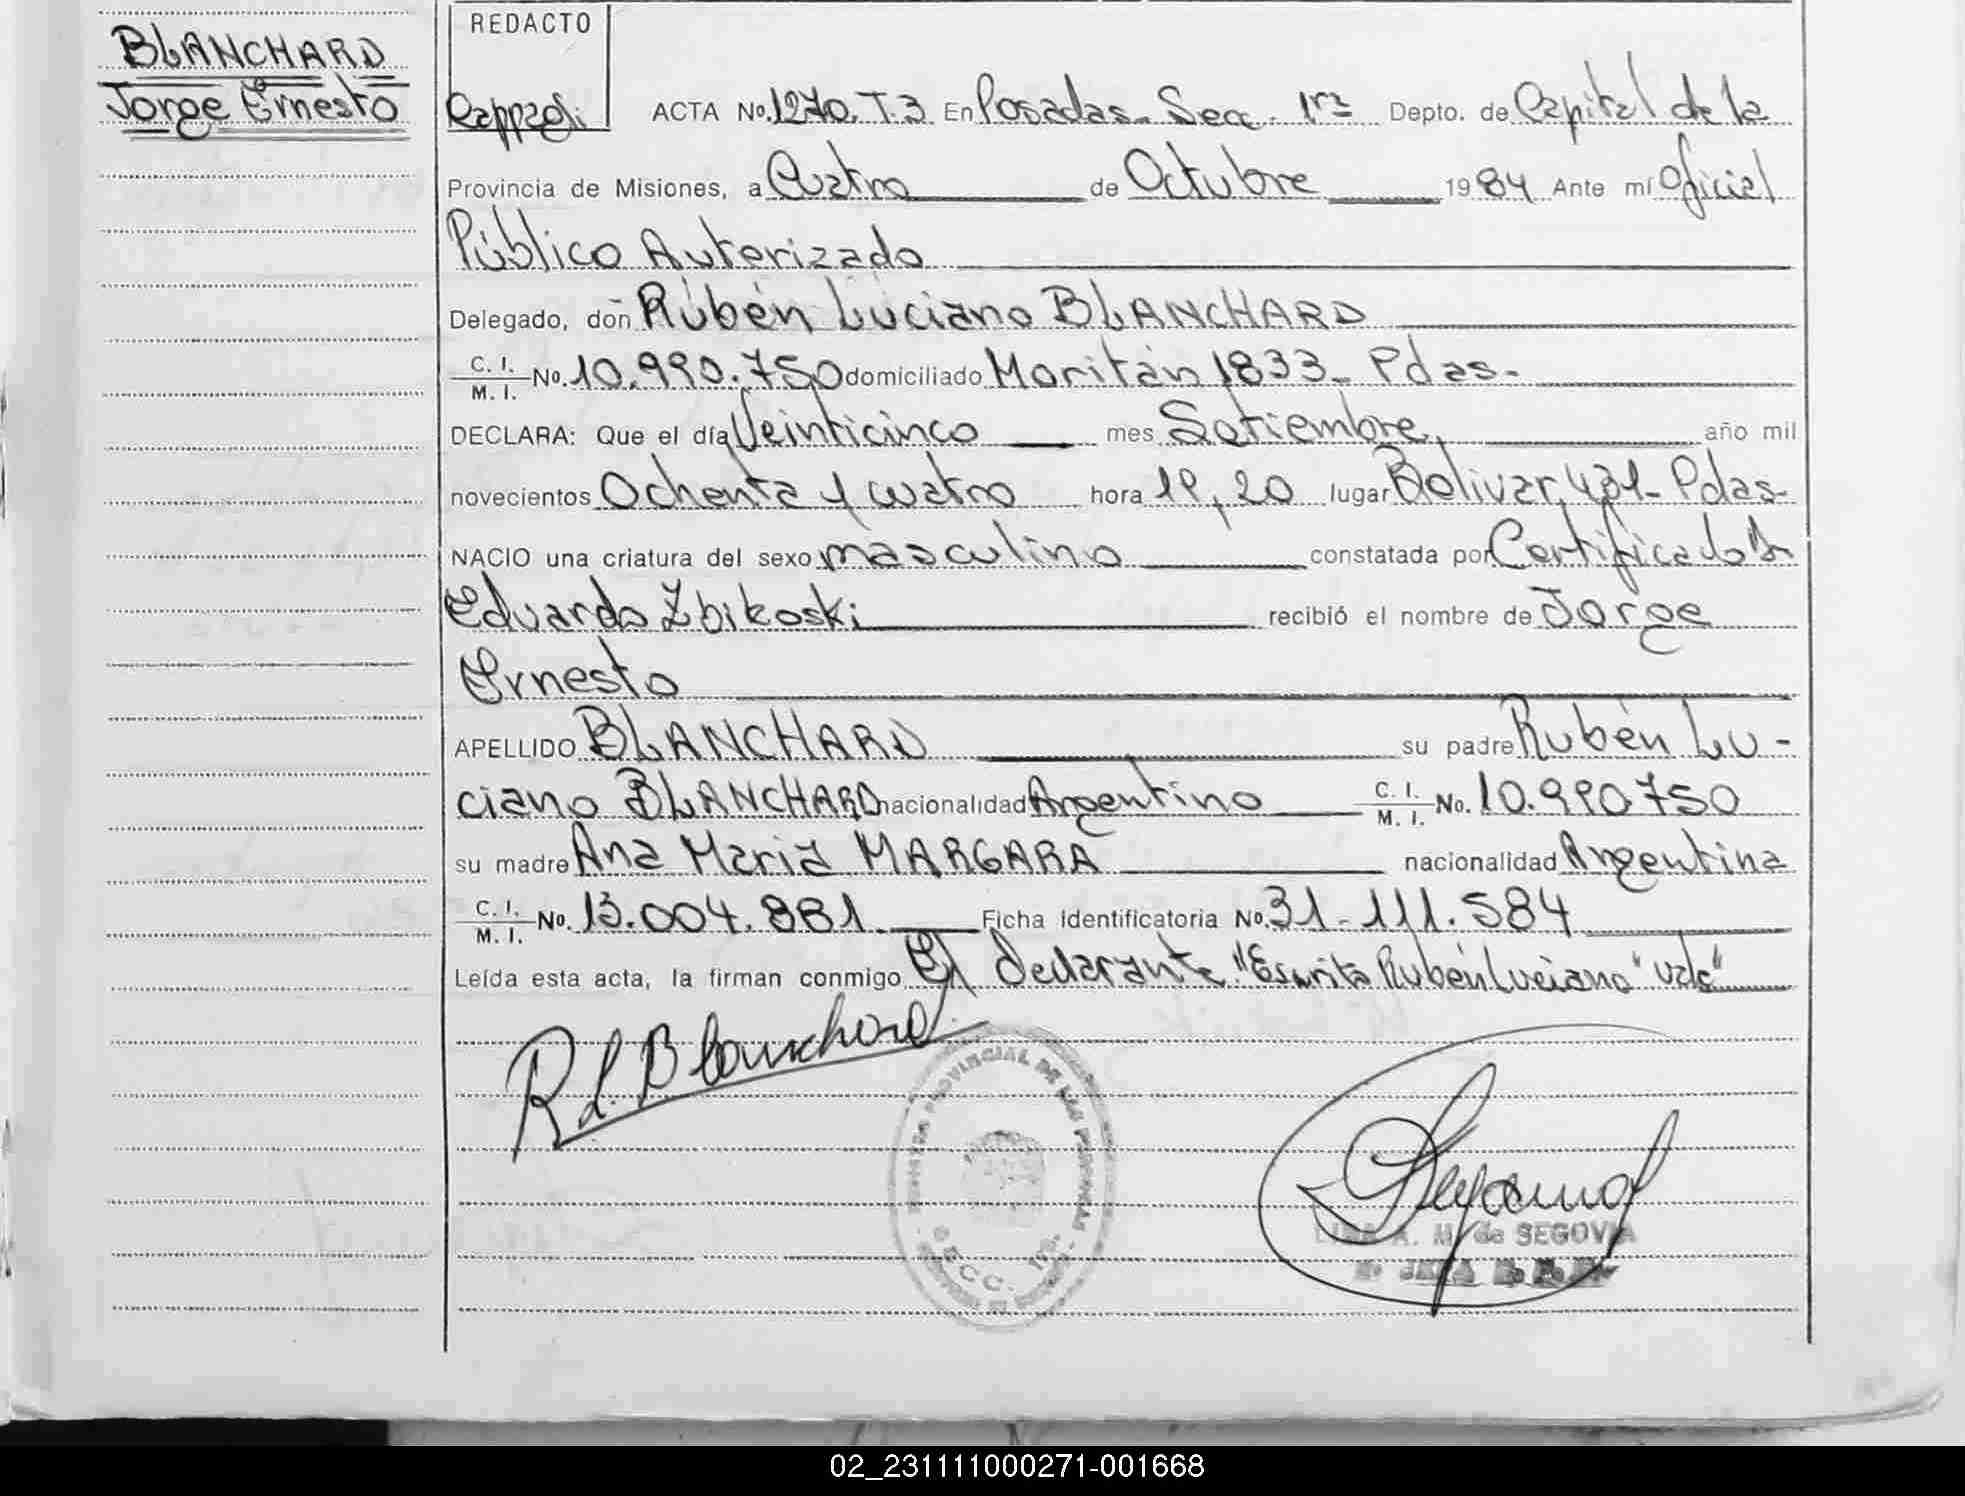 BLANCHARD
Jorge Ernesto
REDACTO
ACTA No. 1270. T.3 En Posadas - Secc. 1ra Depto. de Capital de la
Provincia de Misiones, a Cuatro de Octubre 1984 Ante mí Oficial
Público Autorizado
Delegado, don Rubén Luciano BLANCHARD
C. I. / M. I. No. 10.990.750 domiciliado Moritán 1833 - Pdas-
DECLARA: Que el día Veinticinco mes Setiembre, año mil
novecientos Ochenta y cuatro hora 19,20 lugar Bolivar 431 - Pdas-
NACIO una criatura del sexo masculino constatada por Certificado Dr
Eduardo Zbikoski recibió el nombre de Jorge
Ernesto
APELLIDO BLANCHARD su padre Rubén Lu-
ciano BLANCHARD nacionalidad Argentino C. I. / M. I. No. 10.990.750
su madre Ana Maria MARGARA nacionalidad Argentina
C. I. / M. I. No. 13.004.881 Ficha Identificatoria No. 31-111.584
Leída esta acta, la firman conmigo El declarante. "Escrito Rubén Luciano" vale"
R. L. Blanchard
PROVINCIAL DE LAS PERSONAS
SECC. 1ra.
A. M. de SEGOVIA
02_231111000271-001668